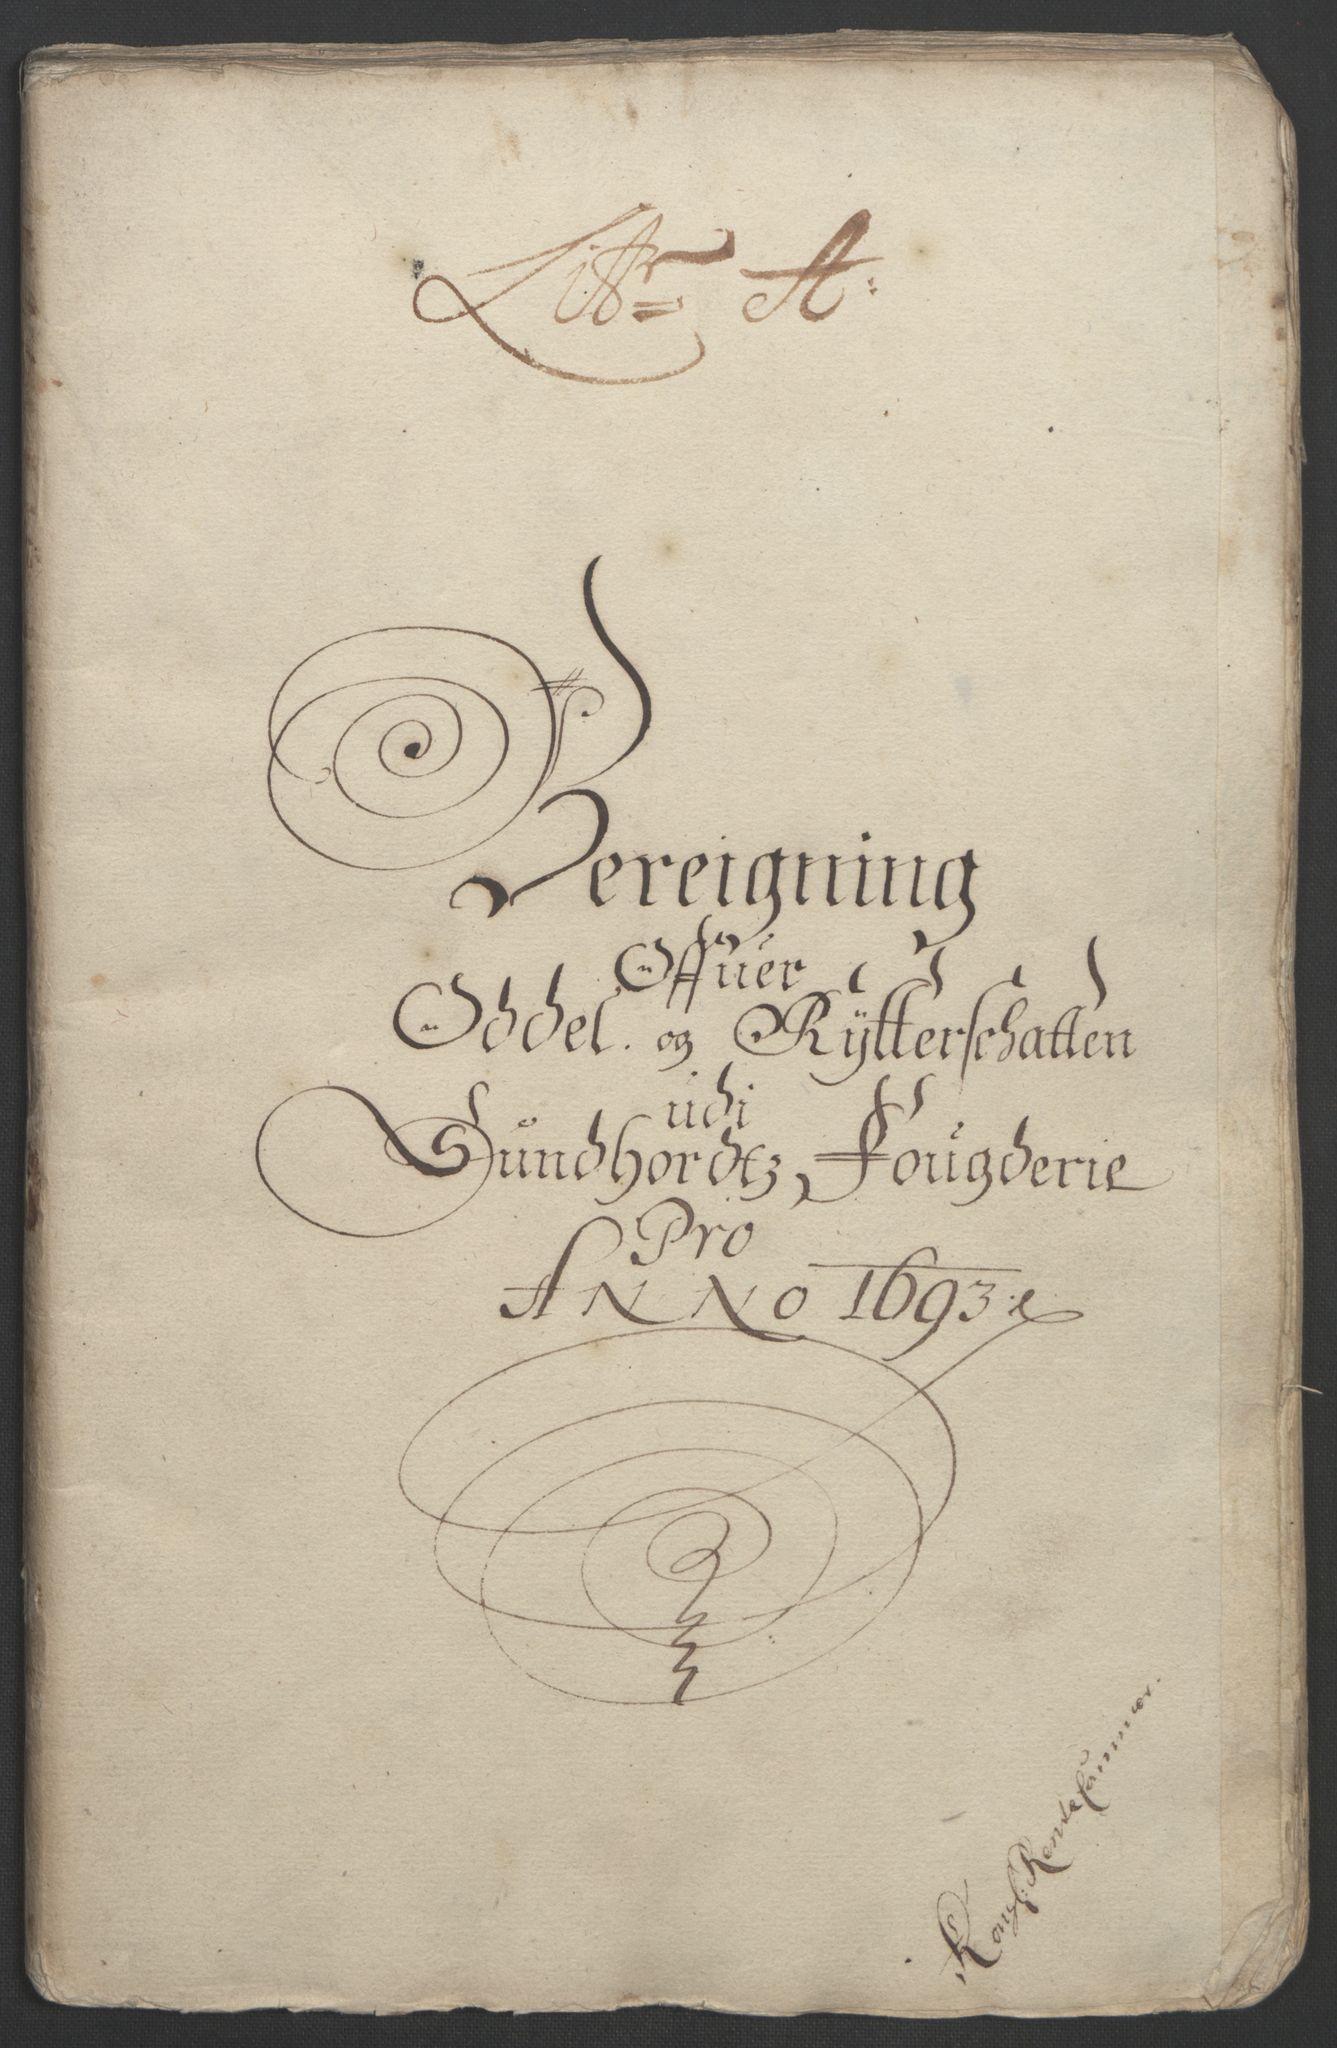 Littr A:
Bereigning
Offuer
Oddel. og Rÿtterschatten
udi
Sundhordtz Fougderie
Pro
ANNO 1693
Kongl: Rentekammer.